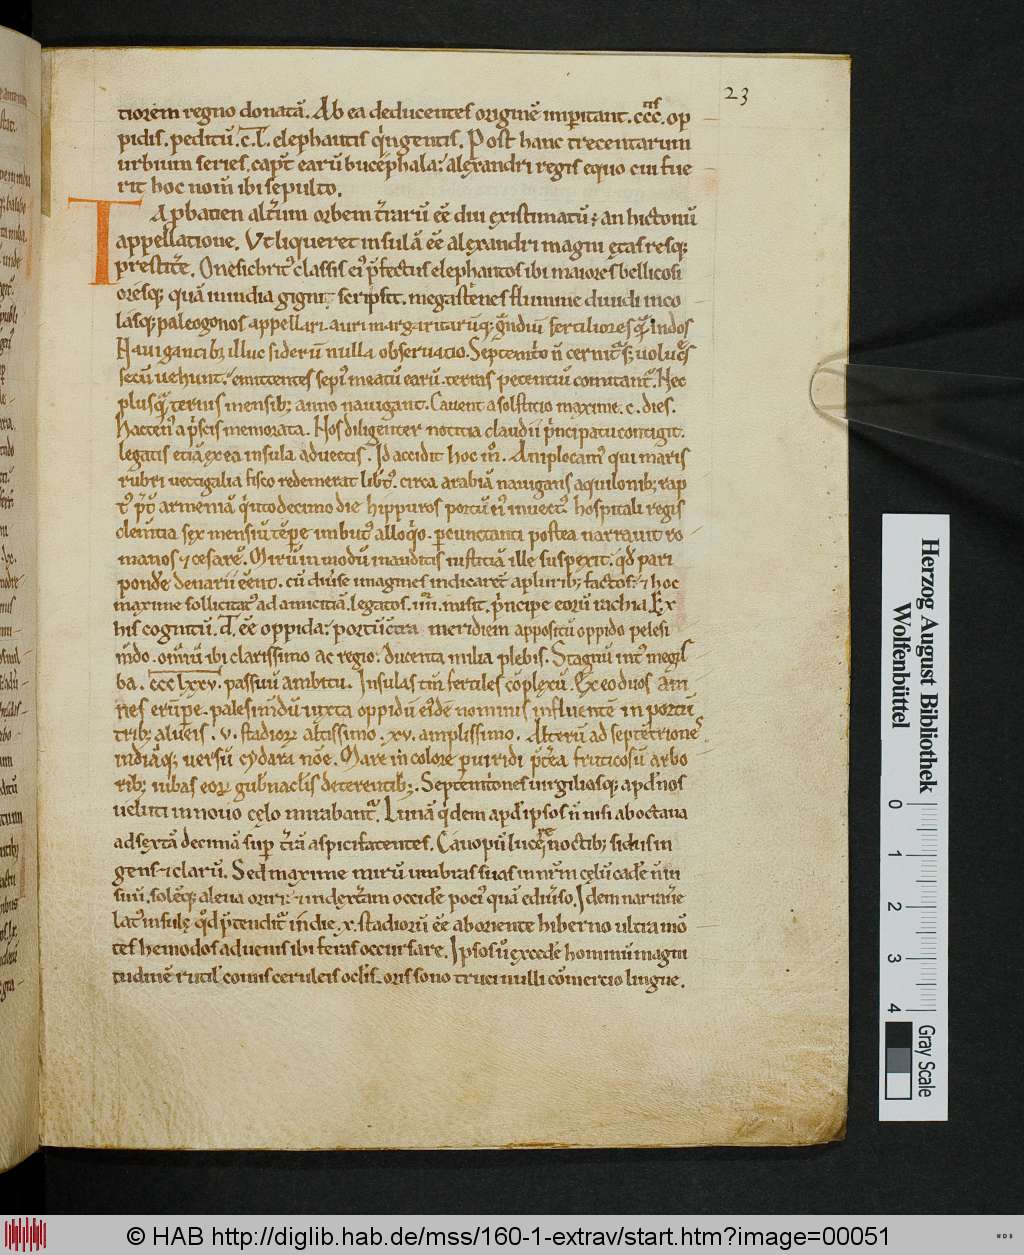 23
tiorem regno donatā. Ab ea deducentes originē imꝑitant. ccc.as op
pidis. peditū. c̄.l̄. elephantis qͥngentis. Post hanc trecentarum
urbium series. capͭ earū bucephala: alexandri regis equo cui fue
rit hoc nom̄ ibi sepulto.
Tapbanen alt̾um orbem t̾rarū eē diu existimatū; an hictonū
appellatione. Ut liqueret insulā eē alexandri magni ętas resq;
prestit̾e. Onesicritꝰ classis eiꝰ p̄fectus elephantos ibi maiores bellicosi
oresq; quā in india gigni. scripsit. megastenes flumine diuidi inco
lasq; paleogonos appellari. auri margaritarūq; gͣndiū fertiliores qͣ indos
Nauigantib; illuc siderū nulla obseruatio. Septemt̾o n̄ cernitͬ s; uolucͤs
secū uehunt. emittentes sepiꝰ meatū earū. terras petentiū comitantͬ. Nec
plusqͣ ternis mensib; anno nauigant. Cauent a solstitio maxime. c. dies.
Hactenꝰ a pͥscis memorata. Nos diligenter notitia claudii pͥncipatu contigit.
legatis etiā ex ea insula aduectis. Id accidit hoc mͦ. Anniplocamꝰ qui maris
rubri uectigalia fisco redemerat libͭꝰ. circa arabiā nauigans aquilonib; rap
tꝰ p̄t̾ armeniā qͥntodecimo die hippuros portū eiꝰ inuectꝰ hospitali regis
clem̄tia sex mensiū tēpe imbutꝰ alloqͥo. ꝑcunctanti postea narrauit ro
manos ⁊ cesarē. Mirū in modū in auditis iustitiā ille suspexit. qd̄ pari
pondͤe denarii eēnt. cū diūse imagines indicarēt a plurib; factos. ⁊ hoc
maxime sollicitatꝰ ad amicitiā. legatos. iiii. misit. pͥncipe eorū rachia. Ex
his cognitū. d̄. eē oppida: portū cͭra meridiem appositū oppido palesi
m̄do. om̄iū ibi clarissimo ac regio: ducenta milia plebis. Stagnū intͥ megis
ba. ccclxxv. passuū ambitu. Insulas tm̄ fertiles cōplexū. Ex eo duos am
nes erūpe. palesim̄dū iuxta oppidū eiꝰdē nominis influentē in portū
trib; alueis. v. stadiorꝝ altissimo. xv. amplissimo. Alterū ad septētrionē
indiāq; uersū cydara nōe. Mare in colore ꝑuiridi pͭ̄ea fruticosū arbo
rib; iubas eorꝝ gubnaclis deterentib;. Septemt̾ones uirgiliasq; apd̄ nos
ueluti in nouo cęlo mirabantͬ. Lunā qͥdem apd̄ ipsos n̄ nisi ab octaua
ad sextā decimā suꝑ t̾rā aspici fatentes. Canopū lucere noctib; sidus in
gens ⁊ clarū. Sed maxime mirū umbras suas in nr̄m cęlū cadͤe n̄ in
suū. solēq; a leua oriri: ⁊ in dext̾am occidͤe pociꝰ quā ediūso. Idem narrauͤe
latꝰ insulę qd̄ p̄tenditͬ indie. x. stadiorū eē ab oriente hiberno ultra mō
tes hemodos ad uenis ibi feras occursare. Ipsos ū excedͤe hominū magni
tudinē rutilͥ comis ceruleis oclis. oris sono truci nulli cōmercio lingue.
Herzog August Bibliothek
Wolfenbüttel
0 1 2 3 4
Gray Scale
© HAB http://diglib.hab.de/mss/160-1-extrav/start.htm?image=00051